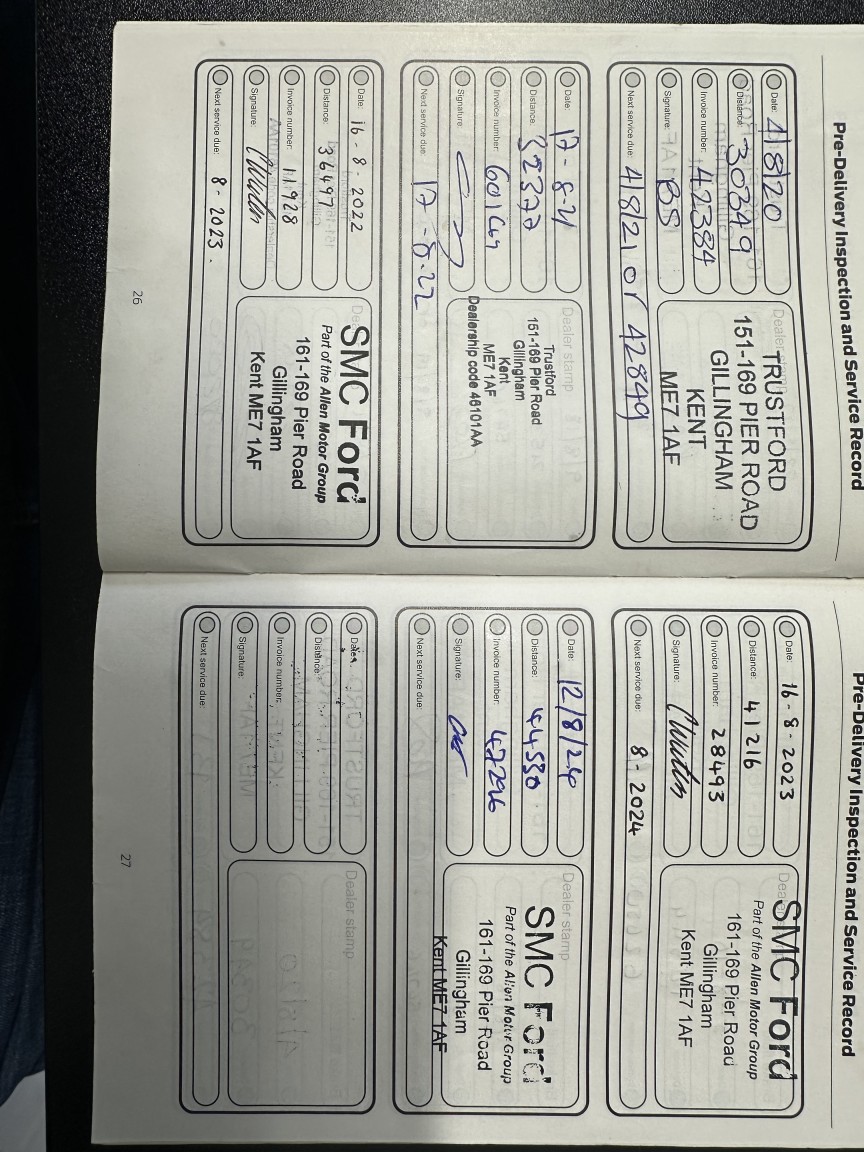 Pre-Delivery Inspection and Service Record
Date: 4/8/20
Distance: 30349
Invoice number: 42384
Signature: BS
Next service due: 4/8/21 or 42849
Dealer stamp
TRUSTFORD
151-169 PIER ROAD
GILLINGHAM
KENT
ME7 1AF
Date: 17-8-21
Distance: 32377
Invoice number:
Signature
Next service due: 17-8-22
Dealer stamp
Trustford
151-169 Pier Road
Gillingham
Kent
ME7 1AF
Dealership code 46101AA
Date: 16-8-2022
Distance: 36497
Invoice number: 11928
Signature:
Next service due: 8-2023.
SMC Ford
Part of the Allen Motor Group
161-169 Pier Road
Gillingham
Kent ME7 1AF
26
Pre-Delivery Inspection and Service Record
Date: 16-8-2023
Distance: 41216
Invoice number: 28493
Signature:
Next service due: 8-2024
SMC Ford
Part of the Allen Motor Group
161-169 Pier Road
Gillingham
Kent ME7 1AF
Date: 12/8/24
Distance: 44530
Invoice number: 47296
Signature:
Next service due:
Dealer stamp
SMC Ford
Part of the Allen Motor Group
161-169 Pier Road
Gillingham
Kent ME7 1AF
Date:
Distance:
Invoice number:
Signature:
Next service due:
Dealer stamp
27